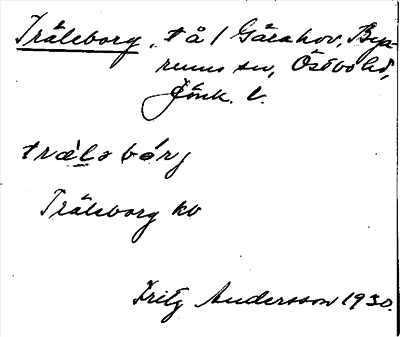 Träleborg, tå / Gärahov, Bya-
rums sn, Östbo hd,
Jönk. l.
trälə bórj
Träleborg kb
Fritz Andersson 1930.